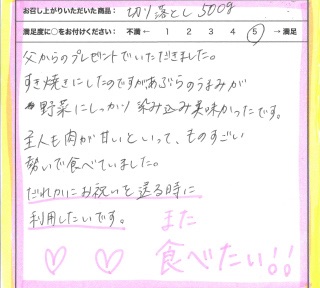 お召し上がりいただいた商品： 切り落とし 500g
満足度に○をお付けください： 不満 ← 1 2 3 4 5 → 満足
父からのプレゼントでいただきました。
すき焼きにしたのですがあぶらのうまみが
野菜にしっかり染み込み美味かったです。
主人も肉が甘いといって、ものすごい
勢いで食べていました。
だれかにお祝いを送る時に
利用したいです。 また
♡ ♡ 食べたい!!